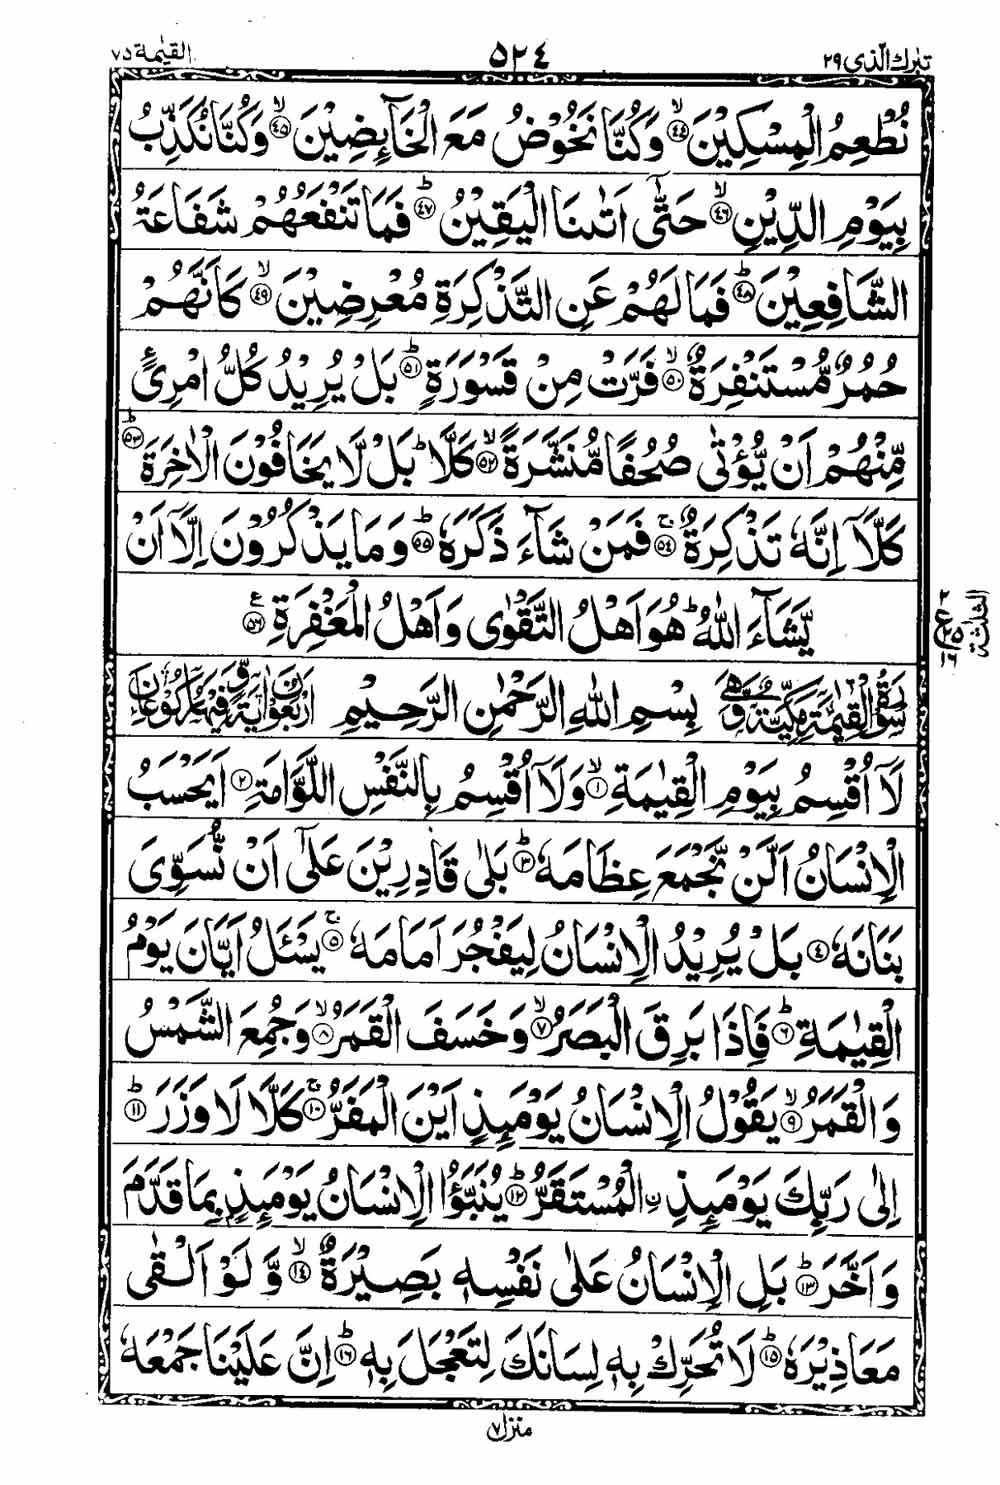 تبٰرك الّذی ٢٩
٥٢٤
القیٰمة ٧٥
نُطْعِمُ الْمِسْكِيْنَ ۙ﴿٤٤﴾ وَكُنَّا نَخُوْضُ مَعَ الْخَآئِضِيْنَ ۙ﴿٤٥﴾ وَكُنَّا نُكَذِّبُ
بِيَوْمِ الدِّيْنِ ۙ﴿٤٦﴾ حَتّٰۤى اَتٰىنَا الْيَقِيْنُ ؕ﴿٤٧﴾ فَمَا تَنْفَعُهُمْ شَفَاعَةُ
الشَّافِعِيْنَ ؕ﴿٤٨﴾ فَمَا لَهُمْ عَنِ التَّذْكِرَةِ مُعْرِضِيْنَ ۙ﴿٤٩﴾ كَاَنَّهُمْ
حُمُرٌ مُّسْتَنْفِرَةٌ ۙ﴿٥٠﴾ فَرَّتْ مِنْ قَسْوَرَةٍ ؕ﴿٥١﴾ بَلْ يُرِيْدُ كُلُّ امْرِئٍ
مِّنْهُمْ اَنْ يُّؤْتٰى صُحُفًا مُّنَشَّرَةً ۙ﴿٥٢﴾ كَلَّا ؕ بَلْ لَّا يَخَافُوْنَ الْاٰخِرَةَ ؕ﴿٥٣﴾
كَلَّاۤ اِنَّهٗ تَذْكِرَةٌ ۚ﴿٥٤﴾ فَمَنْ شَآءَ ذَكَرَهٗ ؕ﴿٥٥﴾ وَمَا يَذْكُرُوْنَ اِلَّاۤ اَنْ
يَّشَآءَ اللّٰهُ ؕ هُوَ اَهْلُ التَّقْوٰى وَاَهْلُ الْمَغْفِرَةِ ﴿٥٦﴾
الثلثة
ع
٢
٢٥
١٦
سُوْرَةُ الْقِيٰمَةِ مَكِّيَّةٌ وَّهِيَ بِسْمِ اللّٰهِ الرَّحْمٰنِ الرَّحِيْمِ اَرْبَعُوْنَ اٰيَةً وَّفِيْهَا رُكُوْعَانِ
لَاۤ اُقْسِمُ بِيَوْمِ الْقِيٰمَةِ ۙ﴿١﴾ وَلَاۤ اُقْسِمُ بِالنَّفْسِ اللَّوَّامَةِ ؕ﴿٢﴾ اَيَحْسَبُ
الْاِنْسَانُ اَلَّنْ نَّجْمَعَ عِظَامَهٗ ؕ﴿٣﴾ بَلٰى قَادِرِيْنَ عَلٰۤى اَنْ نُّسَوِّيَ
بَنَانَهٗ ﴿٤﴾ بَلْ يُرِيْدُ الْاِنْسَانُ لِيَفْجُرَ اَمَامَهٗ ۚ﴿٥﴾ يَسْـَٔلُ اَيَّانَ يَوْمُ
الْقِيٰمَةِ ؕ﴿٦﴾ فَاِذَا بَرِقَ الْبَصَرُ ۙ﴿٧﴾ وَخَسَفَ الْقَمَرُ ۙ﴿٨﴾ وَجُمِعَ الشَّمْسُ
وَالْقَمَرُ ۙ﴿٩﴾ يَقُوْلُ الْاِنْسَانُ يَوْمَئِذٍ اَيْنَ الْمَفَرُّ ۚ﴿١٠﴾ كَلَّا لَا وَزَرَ ؕ﴿١١﴾
اِلٰى رَبِّكَ يَوْمَئِذِ ۨالْمُسْتَقَرُّ ؕ﴿١٢﴾ يُنَبَّؤُا الْاِنْسَانُ يَوْمَئِذٍۭ بِمَا قَدَّمَ
وَاَخَّرَ ؕ﴿١٣﴾ بَلِ الْاِنْسَانُ عَلٰى نَفْسِهٖ بَصِيْرَةٌ ۙ﴿١٤﴾ وَّلَوْ اَلْقٰى
مَعَاذِيْرَهٗ ؕ﴿١٥﴾ لَا تُحَرِّكْ بِهٖ لِسَانَكَ لِتَعْجَلَ بِهٖ ؕ﴿١٦﴾ اِنَّ عَلَيْنَا جَمْعَهٗ
منزل ٧